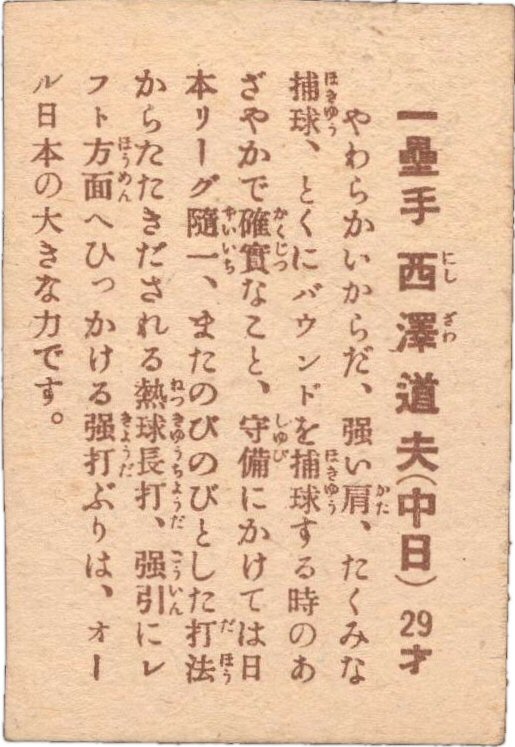 一壘手 西澤道夫(中日) 29才
やわらかいからだ、強い肩、たくみな
捕球、とくにバウンドを捕球する時のあ
ざやかで確實なこと、守備にかけては日
本リーグ隨一、またのびのびとした打法
からたたきだされる熱球長打、强引にレ
フト方面へひっかける强打ぶりは、オー
ル日本の大きな力です。